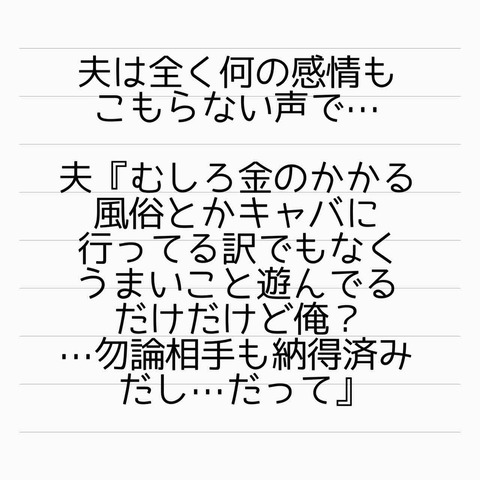 夫は全く何の感情も
こもらない声で…
夫『むしろ金のかかる
風俗とかキャバに
行ってる訳でもなく
うまいこと遊んでる
だけだけど俺？
…勿論相手も納得済み
だし…だって』